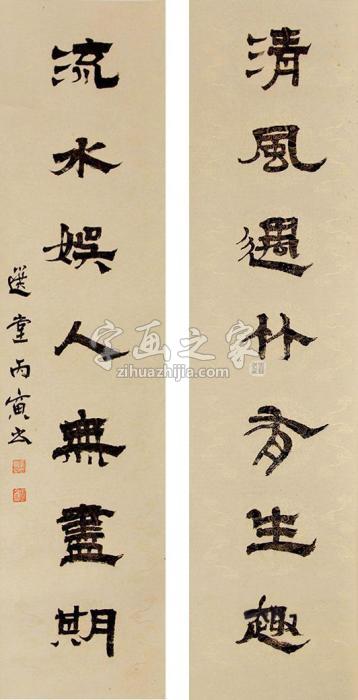 清風遇竹有生趣
流水娛人無盡期
選堂丙寅书
字画之家
zihuazhijia.com